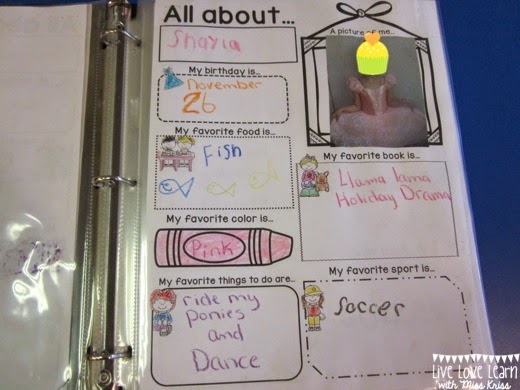 All about...
Shayla
A picture of me...
My birthday is...
November
26
My favorite food is...
Fish
My favorite book is...
Llama lama
Holiday Drama
My favorite color is...
Pink
My favorite things to do are...
ride my
ponies
and
Dance
My favorite sport is...
Soccer
Live Love Learn
with Miss Kriss